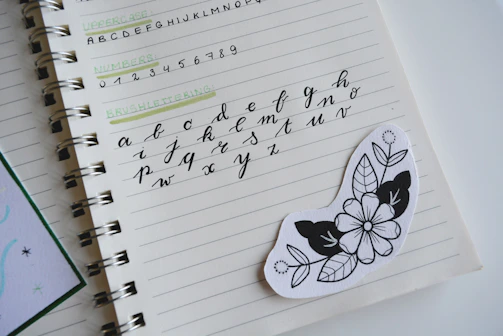 UPPERCASE
ABCDEFGHIJKLMNOP
NUMBERS
0 1 2 3 4 5 6 7 8 9
BRUSHLETTERING
a b c d e f g h
i j k l m n o
p q r s t u v
w x y z